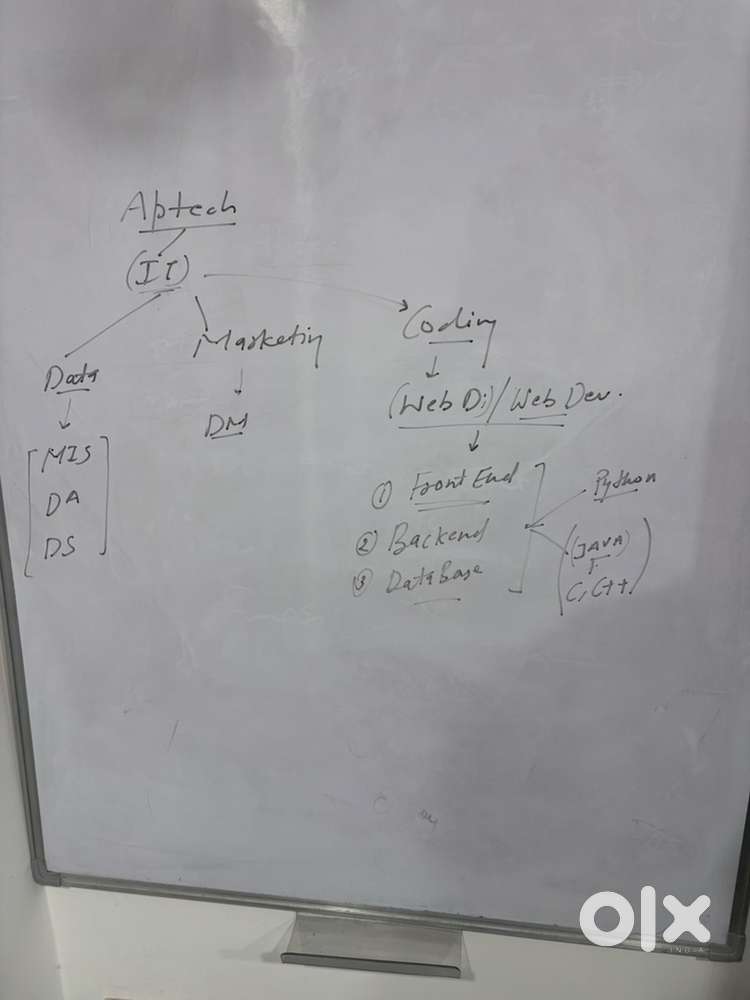 Aptech
(IT)
Data
Marketing
Coding
DM
(Web Di)/Web Dev.
MIS
DA
DS
① Front End
② Backend
③ DataBase
Python
(JAVA)
C, C++
olx
INDIA